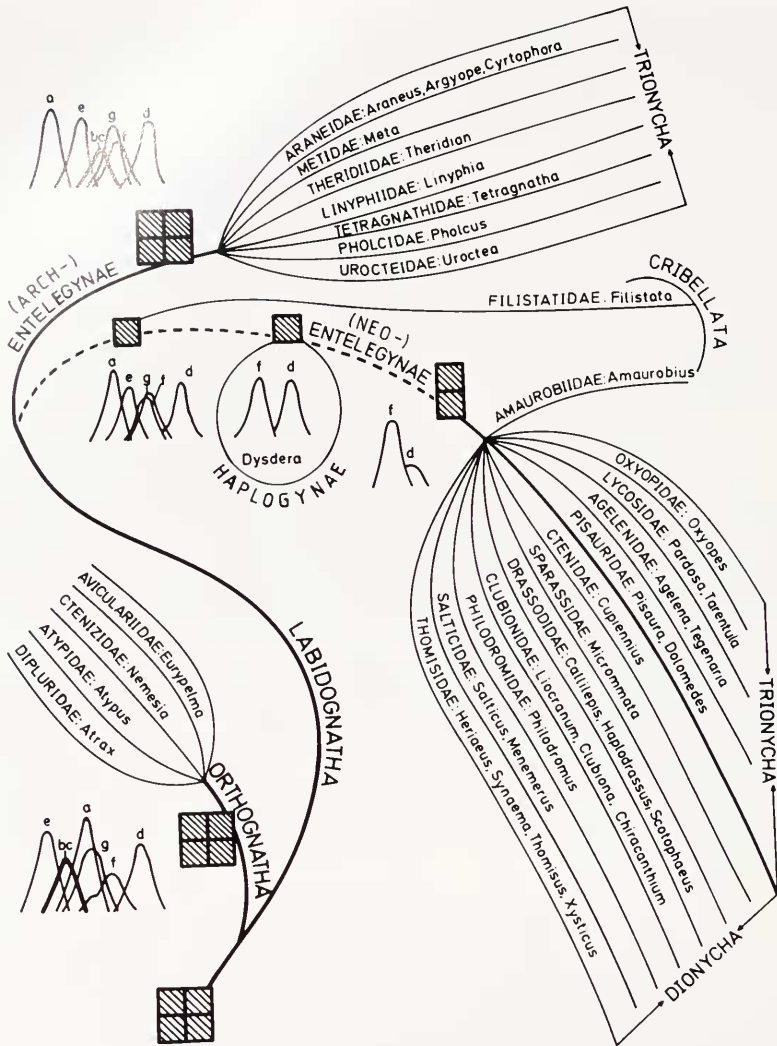 a
e
g
d
bc
f
ARANEIDAE: Araneus, Argyope, Cyrtophora
METIDAE: Meta
THERIDIIDAE: Theridian
LINYPHIIDAE: Linyphia
TETRAGNATHIDAE: Tetragnatha
PHOLCIDAE. Pholcus
UROCTEIDAE: Uroctea
TRIONYCHA
(ARCH-)
ENTELEGYNAE
FILISTATIDAE. Filistata
CRIBELLATA
AMAUROBIIDAE: Amaurobius
(NEO-)
ENTELEGYNAE
a
e
g
f
d
f
d
Dysdera
HAPLOGYNAE
f
d
OXYOPIDAE: Oxyopes
LYCOSIDAE: Pardosa, Tarentula
AGELENIDAE: Agelena, Tegenaria
PISAURIDAE: Pisaura, Dolomedes
CTENIDAE: Cupiennius
SPARASSIDAE: Micrommata
DRASSODIDAE: Callilepis, Haplodrassus, Scotophaeus
CLUBIONIDAE: Liocranum, Clubiona, Chiracanthium
PHILODROMIDAE: Philodromus
SALTICIDAE: Salticus, Menemerus
THOMISIDAE: Heriaeus, Synaema, Thomisus, Xysticus
TRIONYCHA
DIONYCHA
LABIDOGNATHA
AVICULARIIDAE: Eurypelma
CTENIZIDAE: Nemesia
ATYPIDAE: Atypus
DIPLURIDAE: Atrax
ORTHOGNATHA
e
bc
a
g
f
d